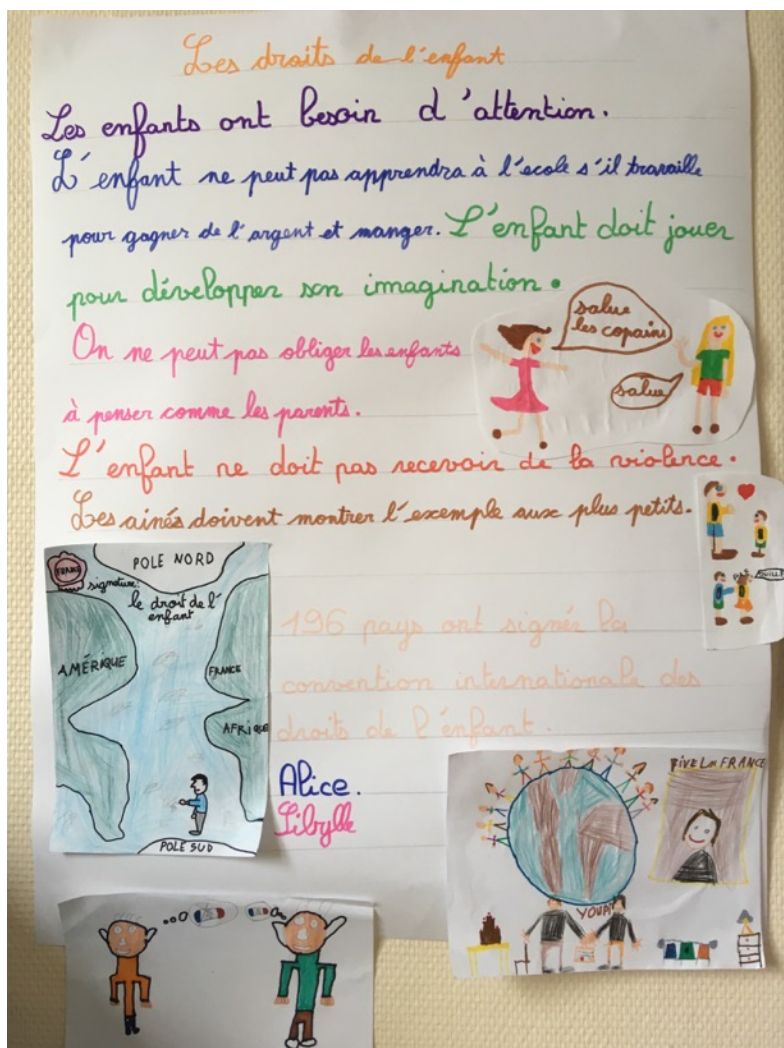 Les droits de l'enfant
Les enfants ont besoin d'attention.
L'enfant ne peut pas apprendra à l'ecole s'il travaille
pour gagner de l'argent et manger. L'enfant doit jouer
pour développer son imagination.
salue
les copains
On ne peut pas obliger les enfants
salue
à penser comme les parents.
L'enfant ne doit pas recevoir de la violence.
Les ainés doivent montrer l'exemple aux plus petits.
POLE NORD
FRANCE
signature:
le droit de l'
enfant
AMÉRIQUE
FRANCE
AFRIQUE
POLE SUD
196 pays ont signé la
convention internationale des
droits de l'énfant.
Alice.
Sibylle
VIVE La FRANCE
YOUPI